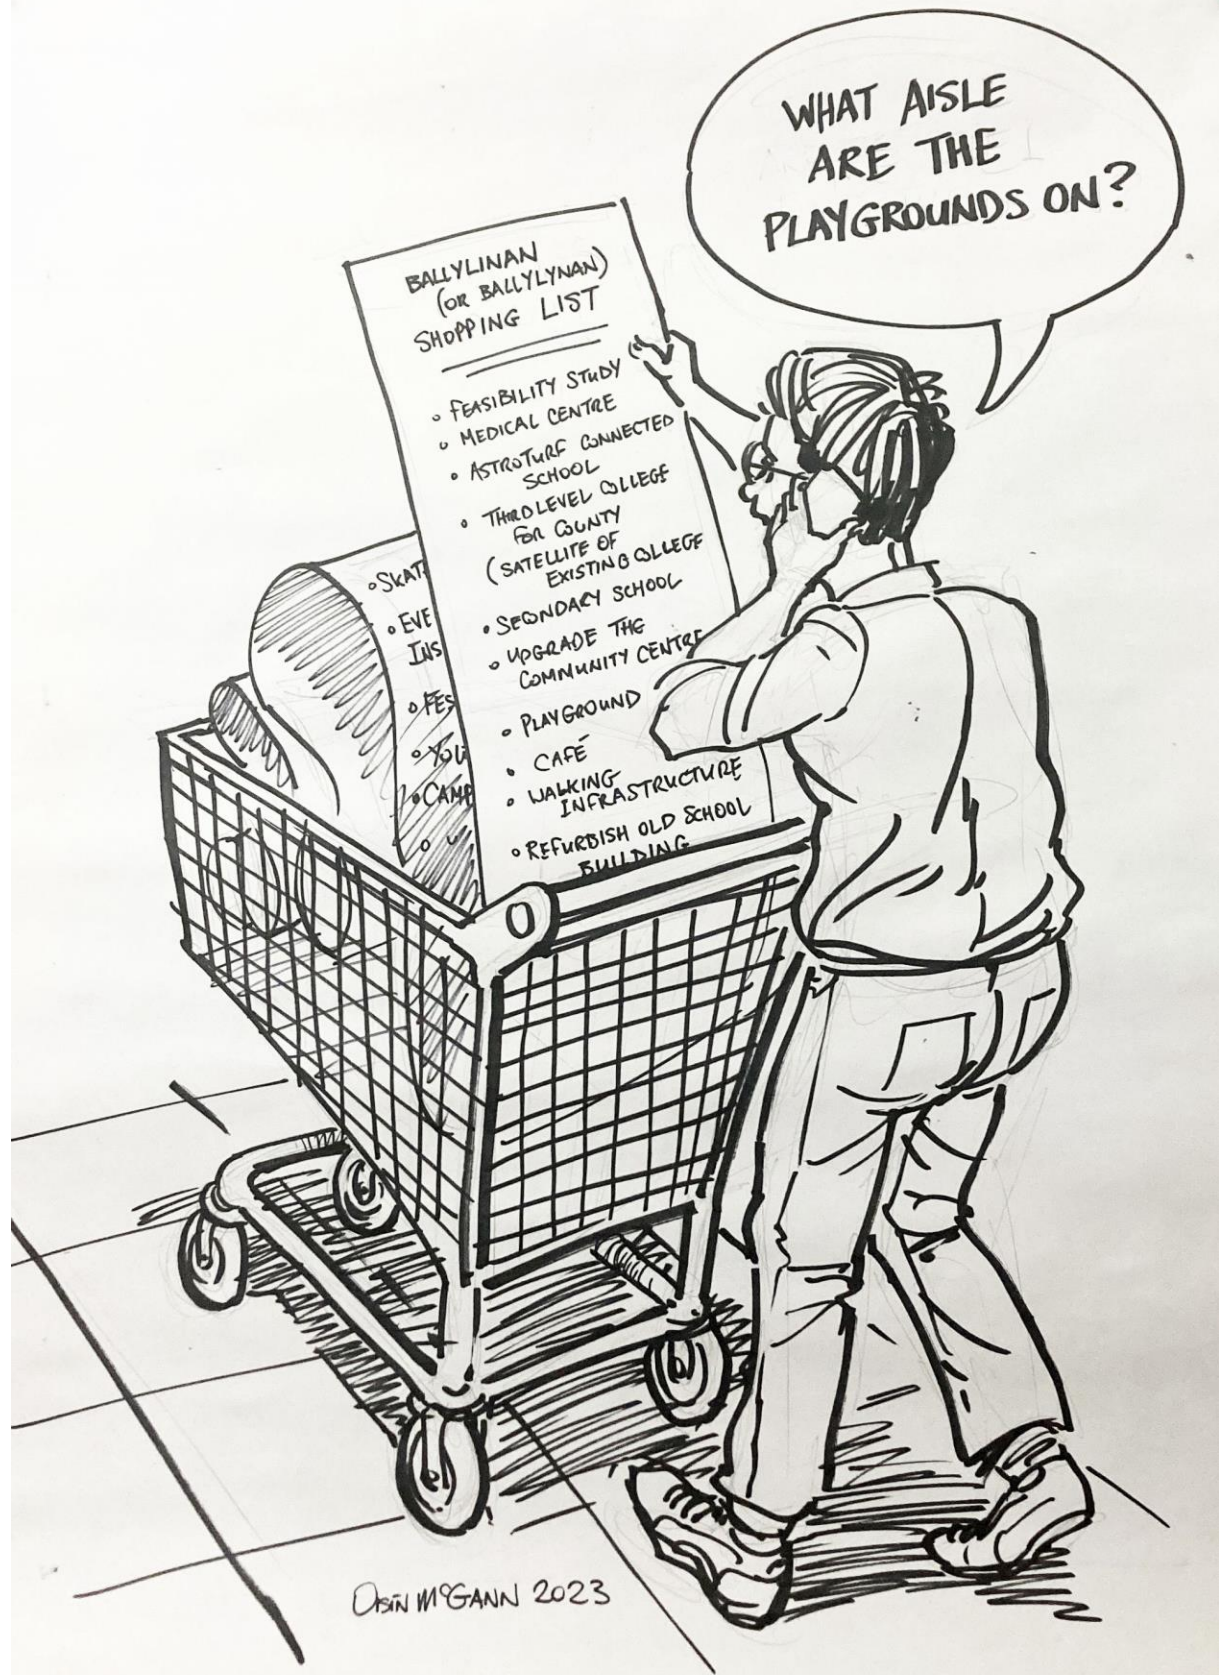 WHAT AISLE
ARE THE
PLAYGROUNDS ON?
BALLYLINAN
(OR BALLYLYNAN)
SHOPPING LIST
• FEASIBILITY STUDY
• MEDICAL CENTRE
• ASTROTURF CONNECTED
SCHOOL
• THIRD LEVEL COLLEGE
FOR COUNTY
(SATELLITE OF
EXISTING COLLEGE
• SECONDARY SCHOOL
• UPGRADE THE
COMMUNITY CENTRE
• PLAYGROUND
• CAFÉ
• WALKING
INFRASTRUCTURE
• REFURBISH OLD SCHOOL
BUILDING
• SKAT
• EVE
INS
• FES
• YOU
• CAMP
OISÍN MCGANN 2023